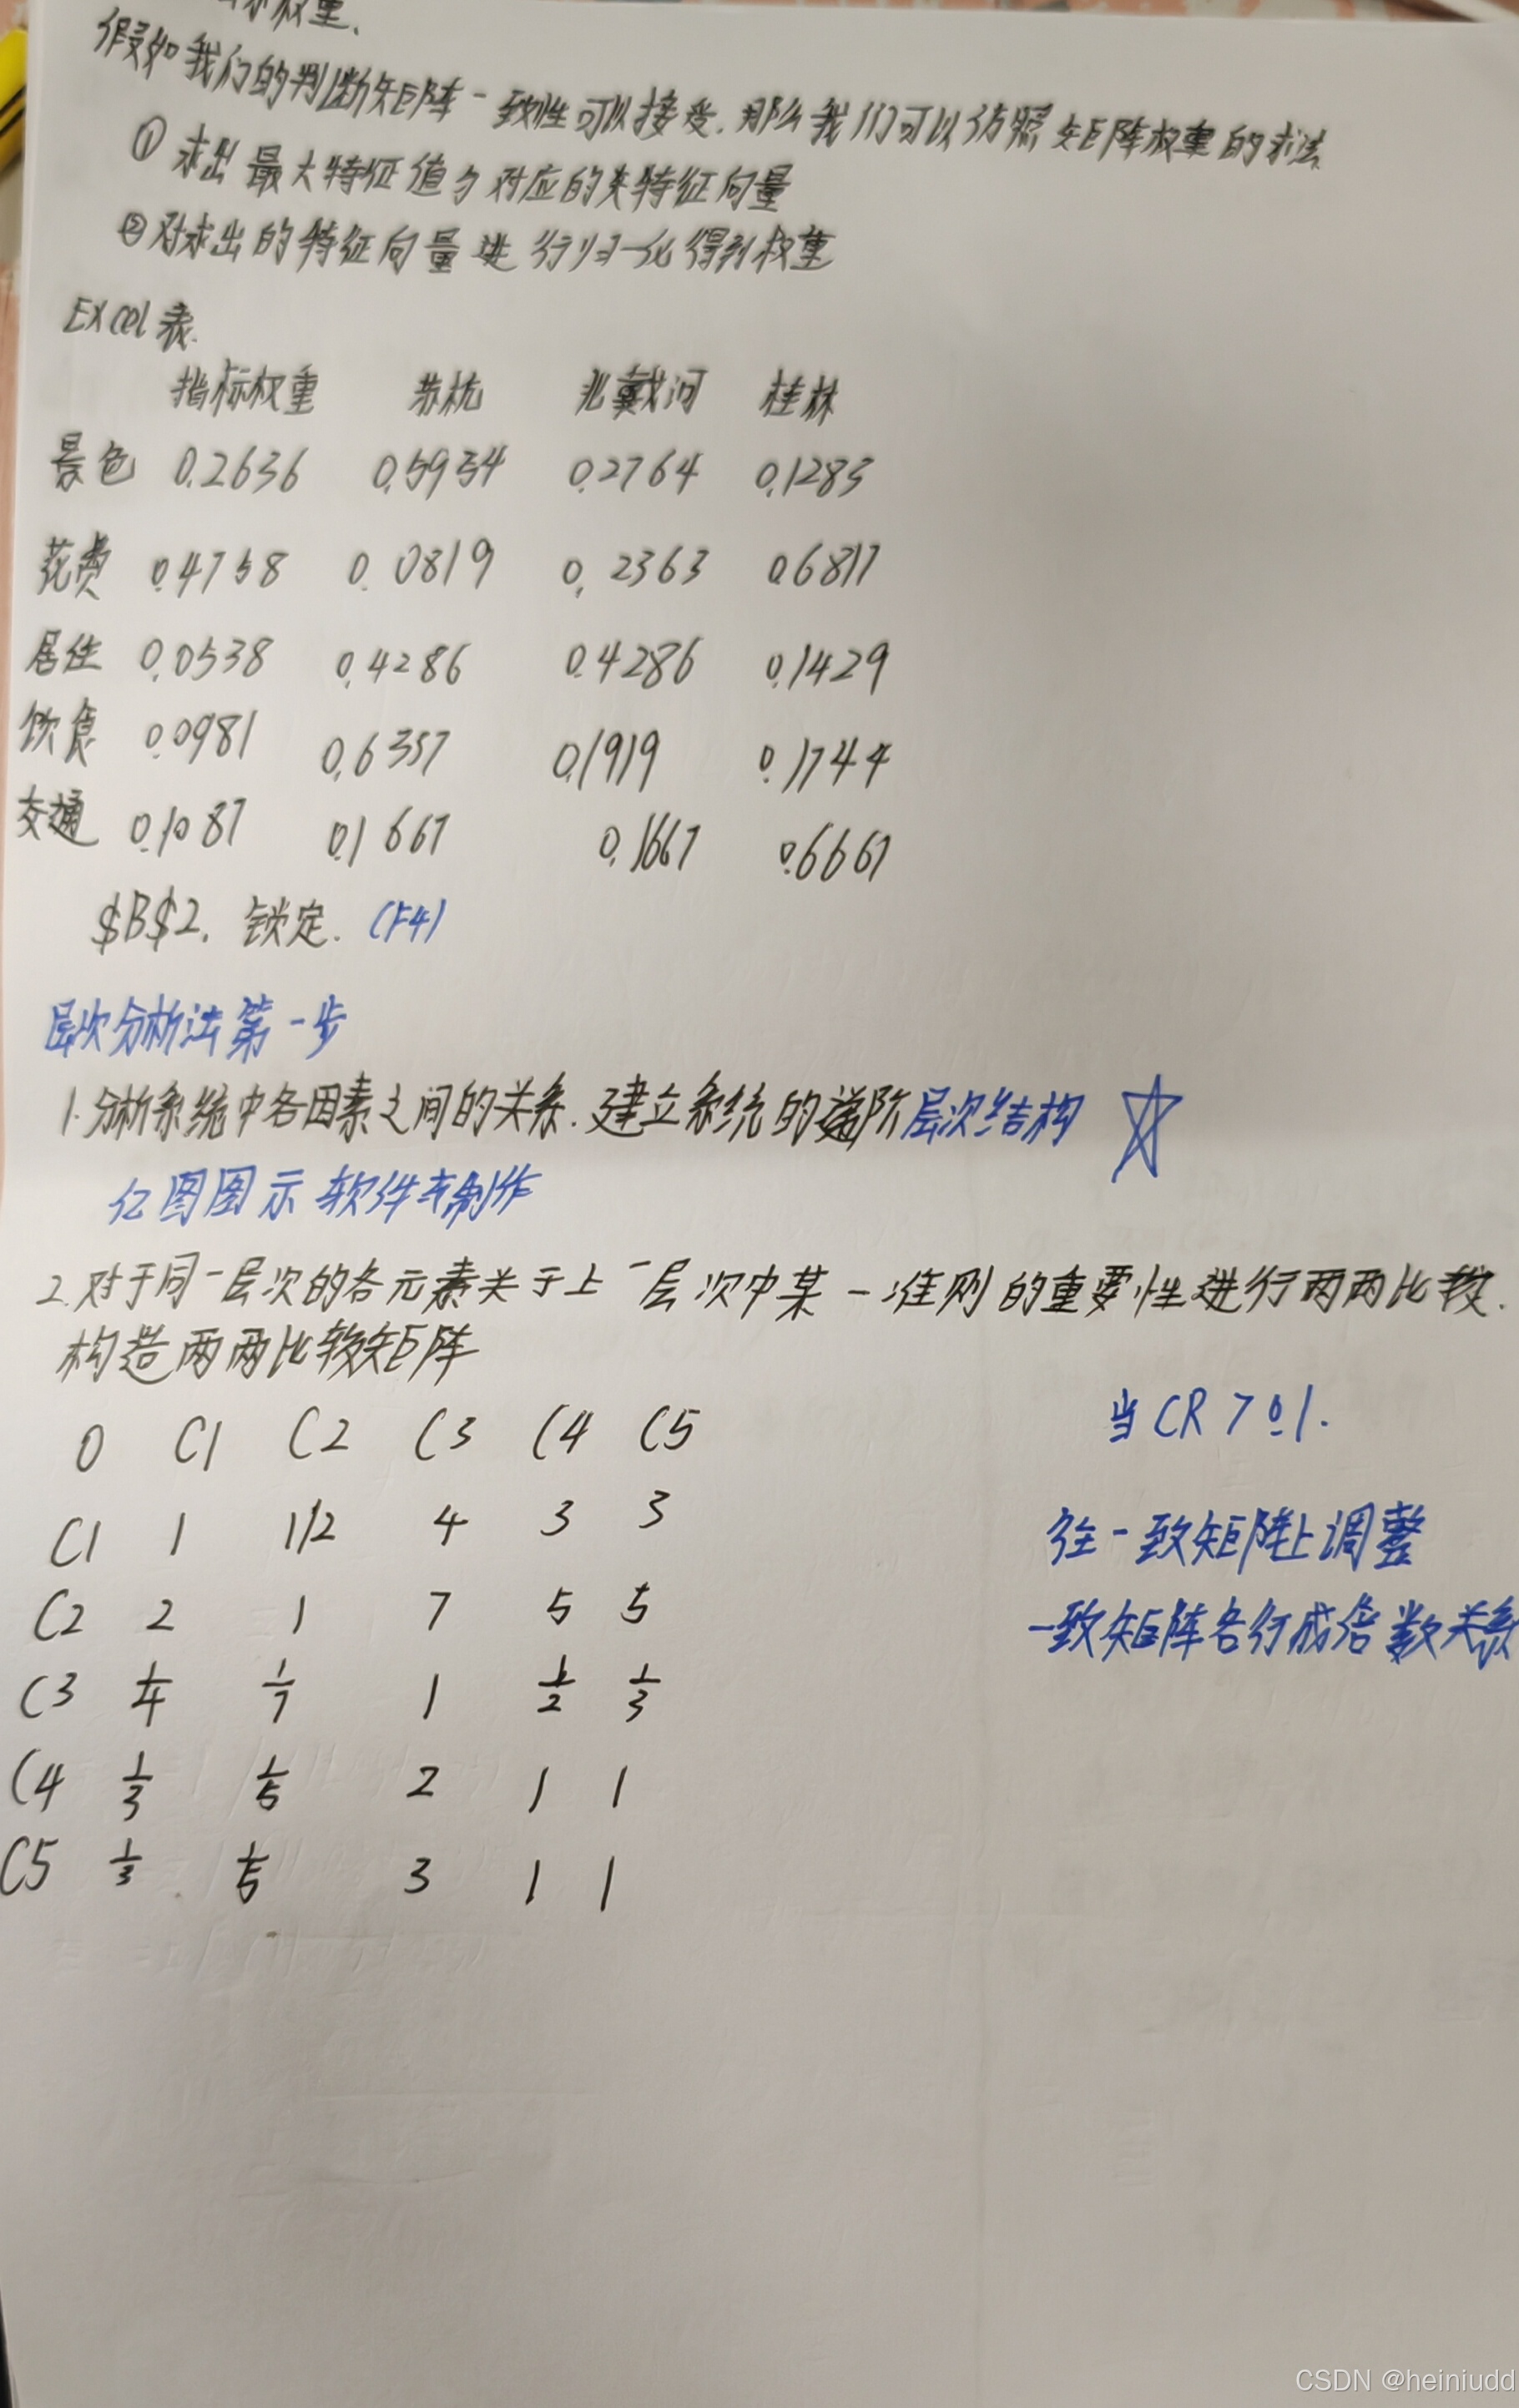 权重.
假如我们的判断矩阵一致性可以接受,那么我们可以仿照矩阵权重的求法
① 求出最大特征值与对应的特征向量
②对求出的特征向量进行归一化得到权重
Excel表.
指标权重 苏杭 北戴河 桂林
景色 0.2636 0.5954 0.2764 0.1283
花费 0.4758 0.0819 0.2363 0.6817
居住 0.0538 0.4286 0.4286 0.1429
饮食 0.0981 0.6357 0.1919 0.1744
交通 0.1087 0.1667 0.1667 0.6667
$B$2. 锁定. (F4)
层次分析法第一步
1.分析系统中各因素之间的关系.建立系统的递阶层次结构
亿图图示 软件来制作
2.对于同一层次的各元素关于上一层次中某一准则的重要性进行两两比较.
构造两两比较矩阵
O C1 C2 C3 C4 C5
C1 1 1/2 4 3 3
C2 2 1 7 5 5
C3 1/4 1/7 1 1/2 1/3
C4 1/3 1/5 2 1 1
C5 1/3 1/5 3 1 1
当CR>0.1.
往一致矩阵上调整
一致矩阵各行成倍数关系
CSDN @heiniudd